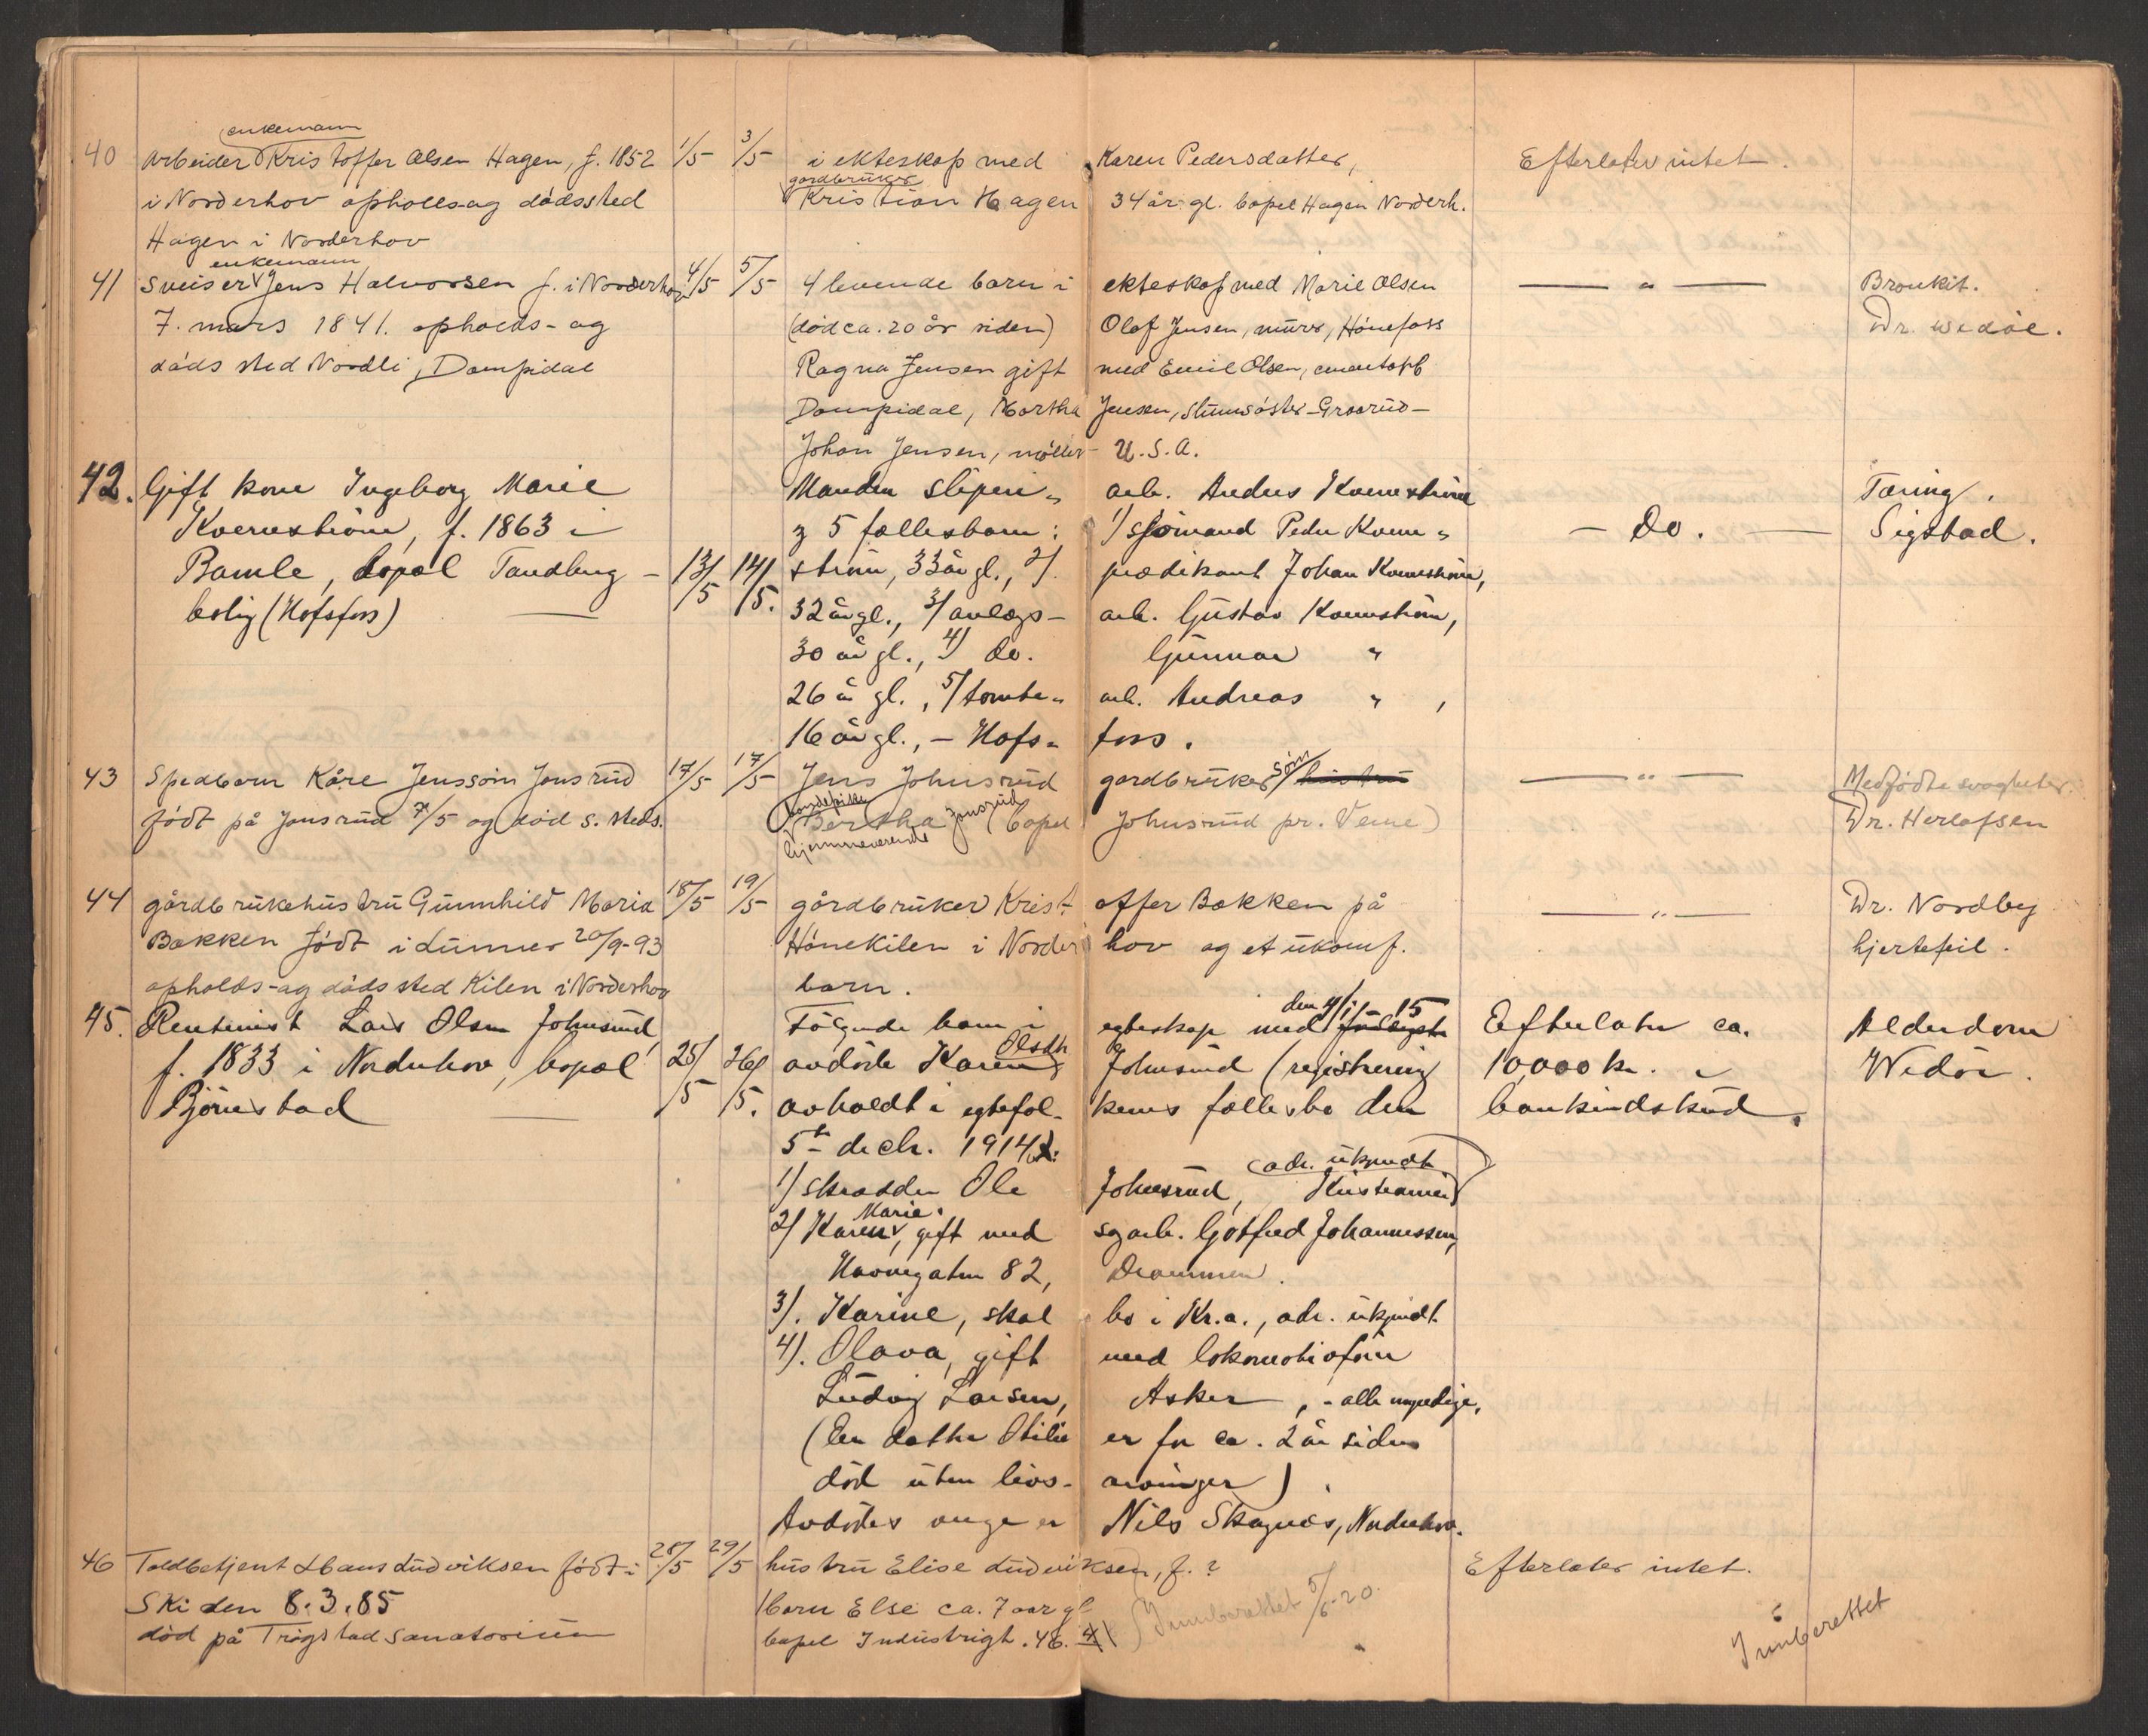 enkemann
40 Arbeider Kristoffer Olsen Hagen, f. 1852 1/5 3/5 i ekteskap med Karen Pedersdatter, Efterlater intet.
gardbruker
i Norderhov opholds og dødssted Kristian Hagen 34 år gl. bopel Hagen Norderh.
Hagen i Norderhov
enkemann
41 Sveiser Jens Halvorsen f. i Norderhov 4/5 5/5 4 levende barn i ekteskap med Marie Olsen — " — Bronkit.
7. mars 1841. opholds- og (død ca. 20 år siden) Olaf Jensen, murer, Hønefoss Dr. Wedøe.
døds sted Nordli, Dampsdal Ragna Jensen gift med Emil Olsen,
Martha Jensen,
Johan Jensen, møller - U.S.A.
42. Gift kone Ingeborg Marie Manden sliperi- arb. Anders Kvernstrøm Tæring.
Kvernstrøm, f. 1863 i 5 fællesbarn: 1/ sjømand Peder Kvern- — Do. — Sigstad.
Bamle, bopæl Tandberg - 13/5 14/5. strøm, 33 år gl., 2/ prædikant Johan Kvernstrøm,
bolig (Hofsfoss) — 32 år gl., 3/ anlægs- arb. Gustav Kvernstrøm,
30 år gl., 4/ do. Gunnar "
26 år gl., 5/ tomte- arb. Andreas " ,
16 år gl., - Hofs- foss.
43 Spedbarn Kåre Jenssøn Jonsrud 17/5 17/5 Jens Johnsrud gardbruker søn — " — Medfødte svagheter.
født på Jonsrud 7/5 og død s. steds. Bertha Jonsrud (bopel Johnsrud pr. Veme) Dr. Herlofsen
hjemmeværende
44 gårdbrukehustru Gunnhild Maria 18/5 19/5 gårdbruker Krist- offer Bakken på — " — Dr. Nordby
Bakken født i Lunner 20/9-93 Hønekilen i Norder hov og et ukonf. hjertefeil.
opholds- og døds sted Kilen i Norderhov barn.
den 4/1 - 15
45. Rentenist Lars Olsen Johnsrud Følgende barn i egteskap med Efterlater ca. Alderdom
Olsdtr
f. 1833 i Norderhov, bopæl 25/5 26/5. avdøde Karen Johnsrud (registrering 10,000 kr. i Wedøe.
Bjørnstad — avholdt i egtefol- kenes fællesbo den bankindskud.
5te decbr. 1914):
adr. ukjendt
1/ skrædder Ole Johnsrud, Kristiania
Marie
2/ Karen, gift med sagarb. Gotfred Johannessen,
Havnegaten 82, Drammen.
3/. Karine, skal bo i Kr.a., adr. ukjendt.
4/. Olava, gift med lokomotivfører
Ludvig Larsen, Asker, - alle myndige.
(En datter Otilie er for ca. 2 år siden
død uten livs- arvinger).
Avdødes verge er Nils Skagnæs, Norderhov.
46 Toldbetjent Hans Ludviksen født i 28/5 29/5 hustru Elise Ludviksen, f. ? Efterlater intet.
Ski den 8.3.85 1 barn Else ca. 7 aar gl. Innberettet 5/6-20.
død på Trøgstad Sanatorium bopel Industrigt. 46. Innberettet